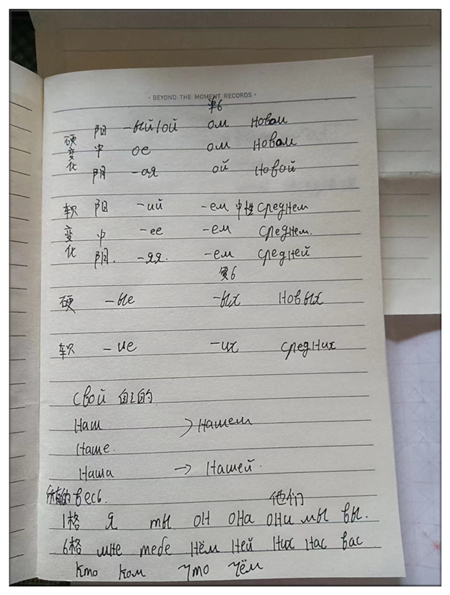 · BEYOND THE MOMENT RECORDS ·
6
硬 阳 -ый/ой ом новом
变 中 ое ом новом
化 阴 -ая ой новой
软 阳 -ий -ем 中性 среднем
变 中 -ее -ем среднем.
化 阴. -яя. -ем средней
6
硬 -ые -ых новых
软 -ие -их средних
свой 自己的
Наш > Нашем
Наше.
Наша → Нашей.
весь. 他们
1格 я ты он она они мы вы.
6格 мне тебе нём ней них нас вас
кто ком что чём